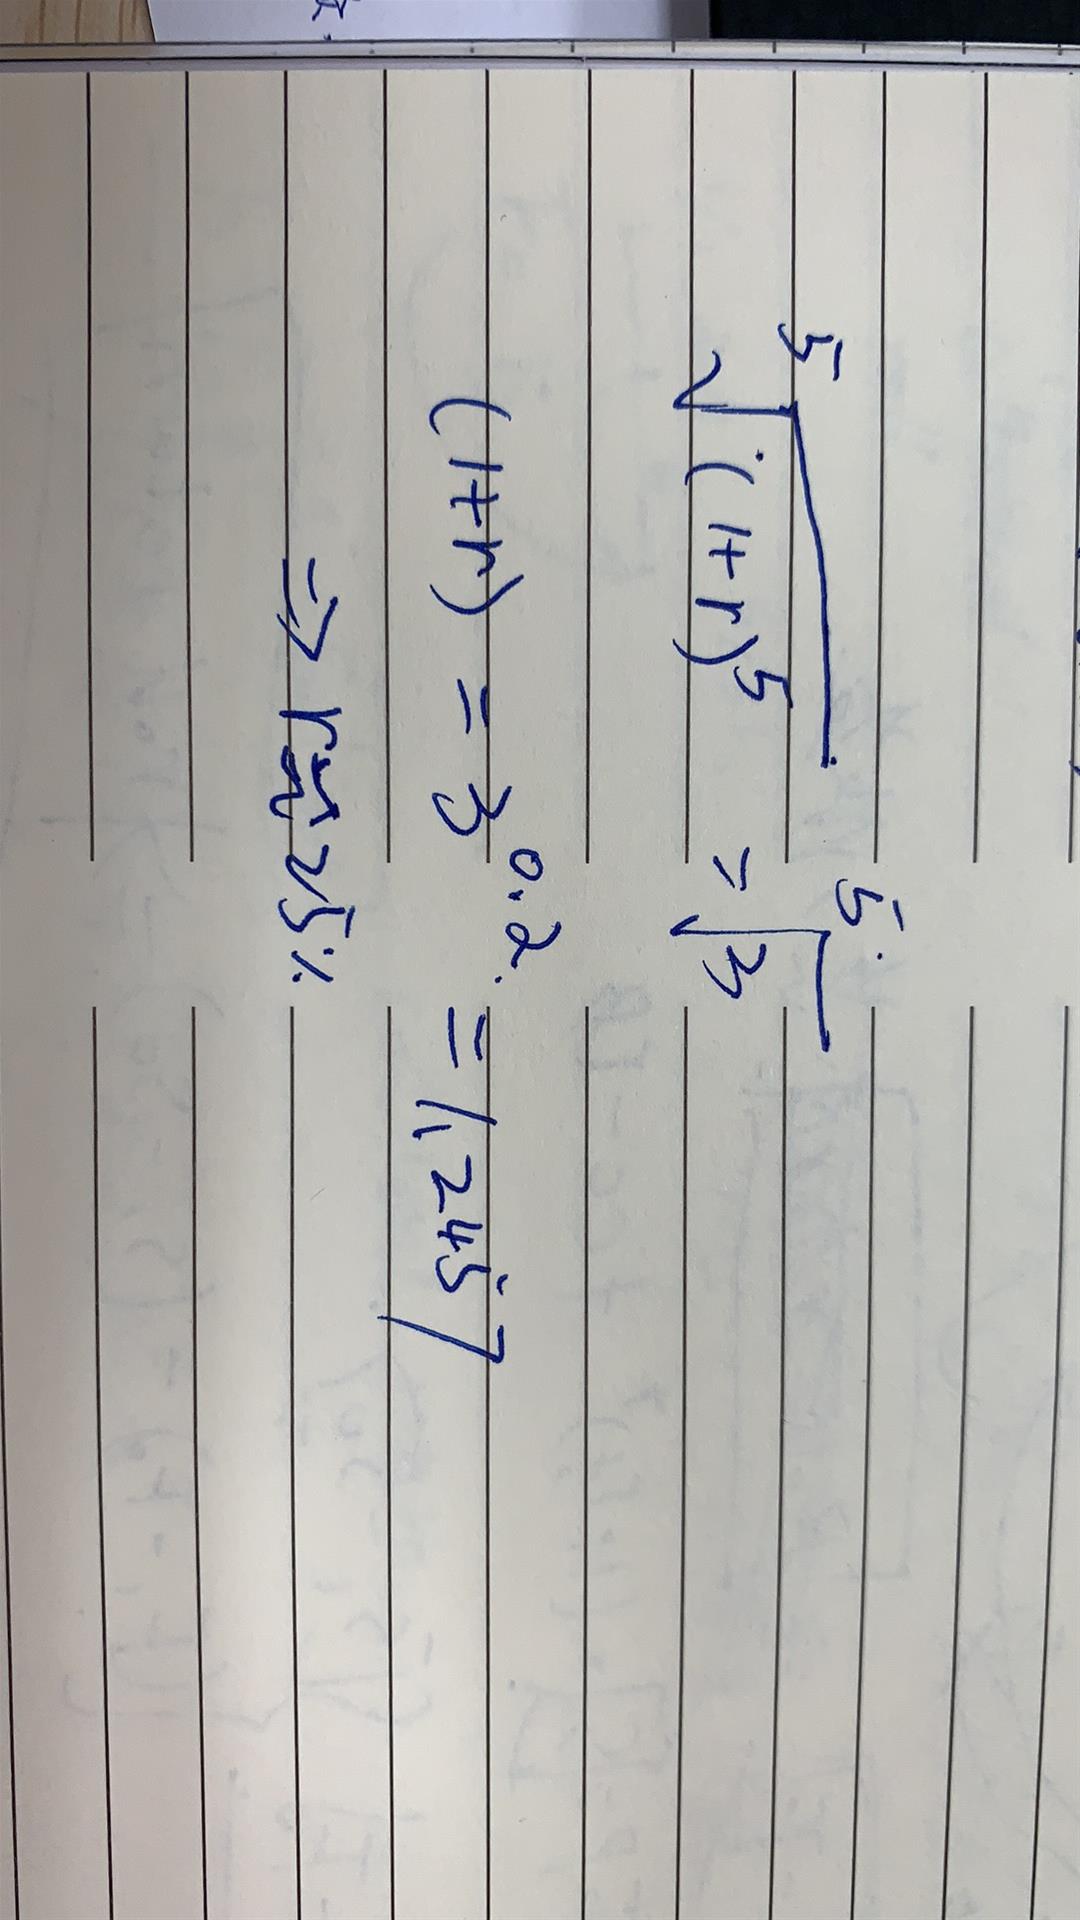 ⁵√(1+r)⁵ = ⁵√3
(1+r) = 3^0.2 = 1,2457
⇒ r ≈ 25%